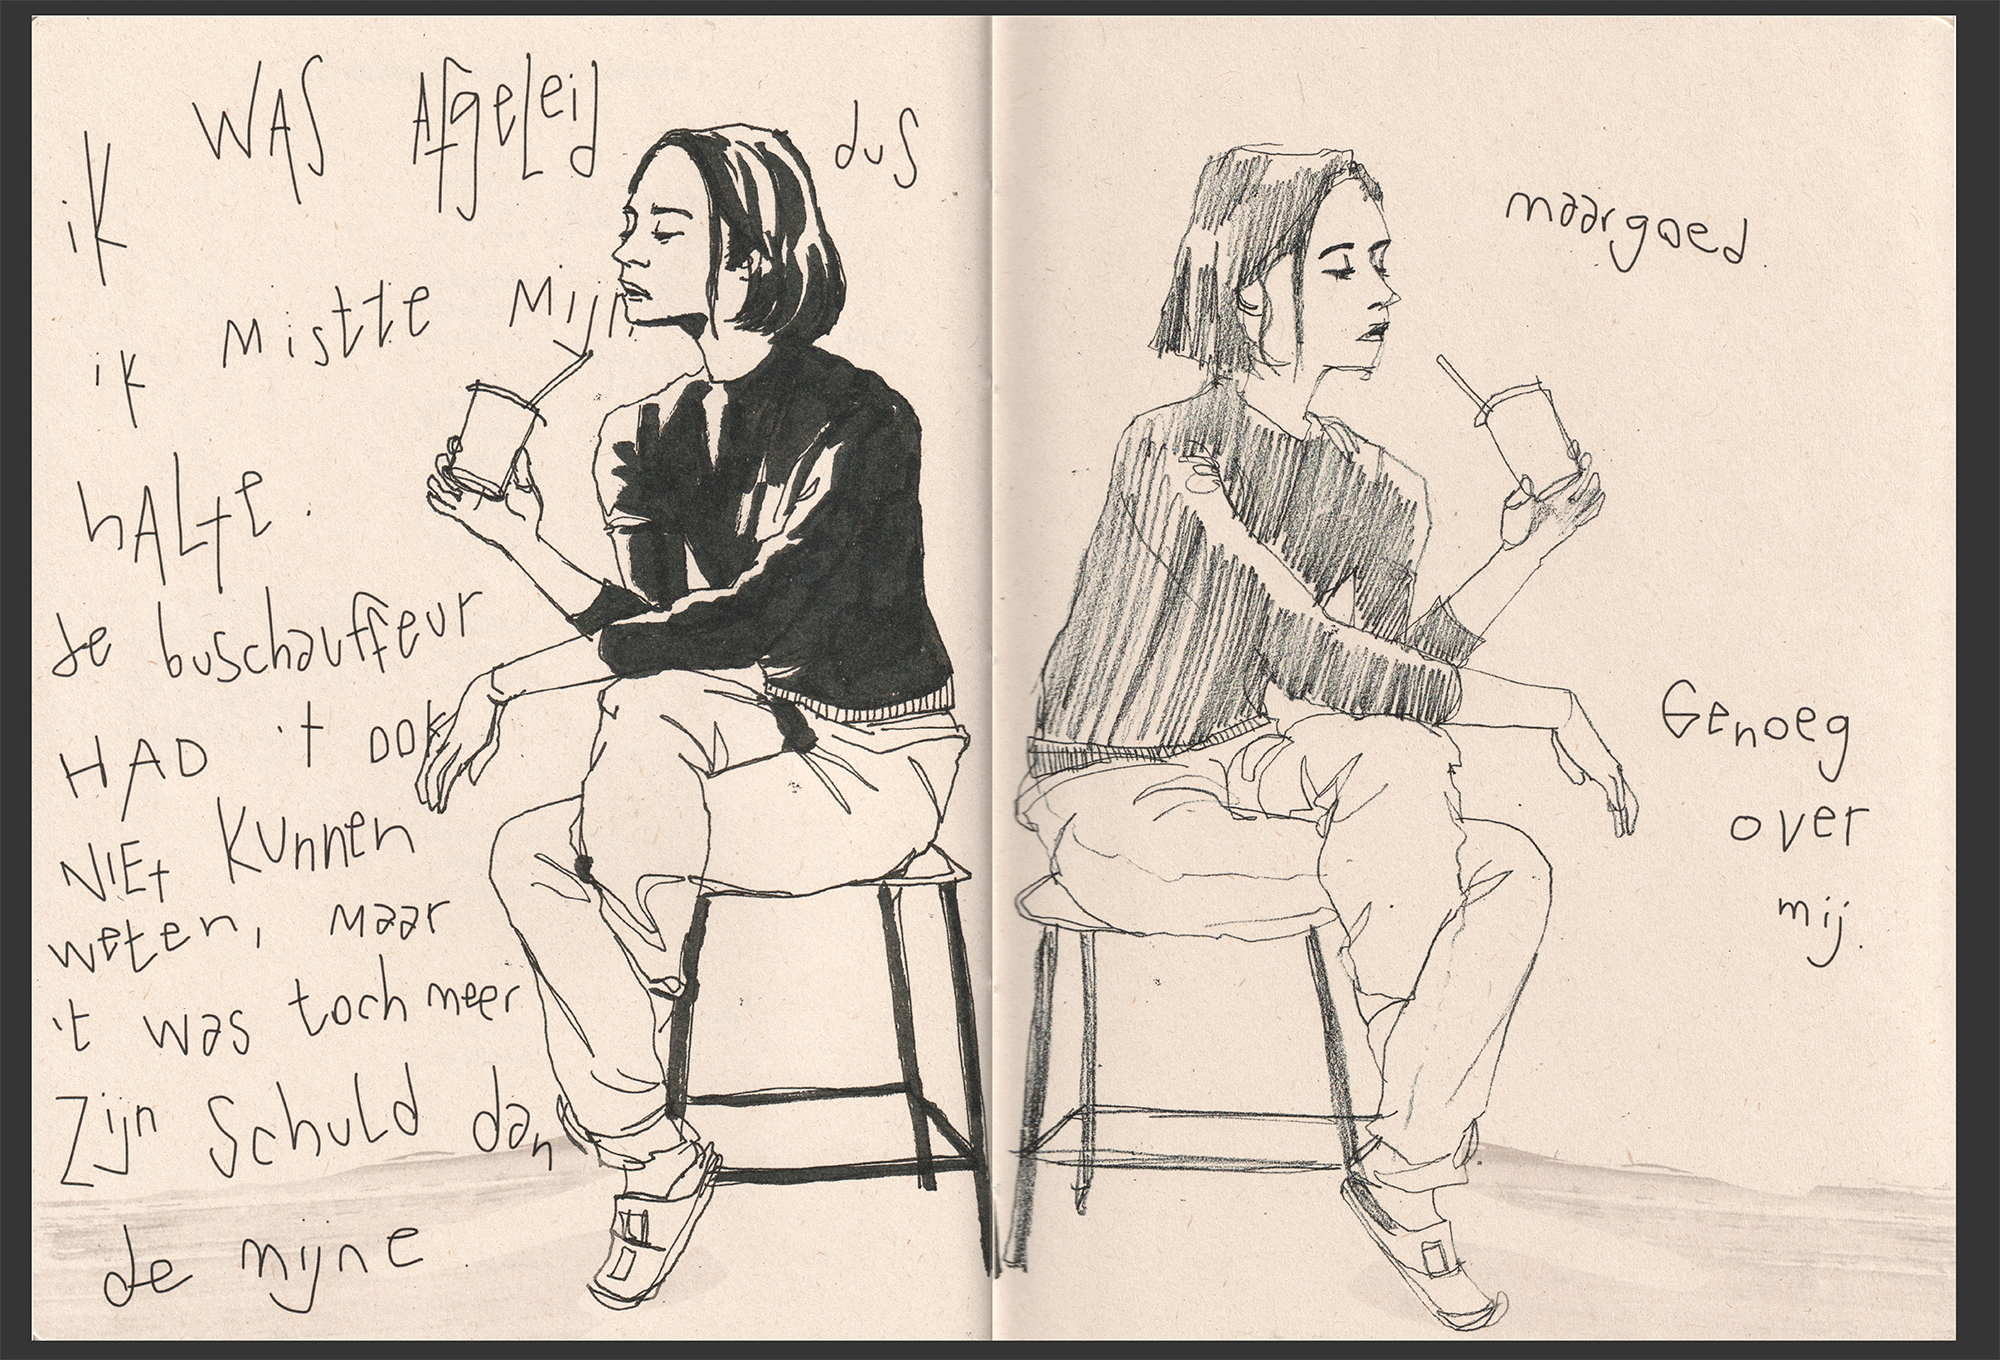 ik WAS Afgeleid dus
ik Mistte Mijn
hALte.
de buschauffeur
HAD 't ook
NIEt KUnnen
weten, maar
't was toch meer
Zijn Schuld dan
de mijne.
maargoed.
Genoeg
over
mij.